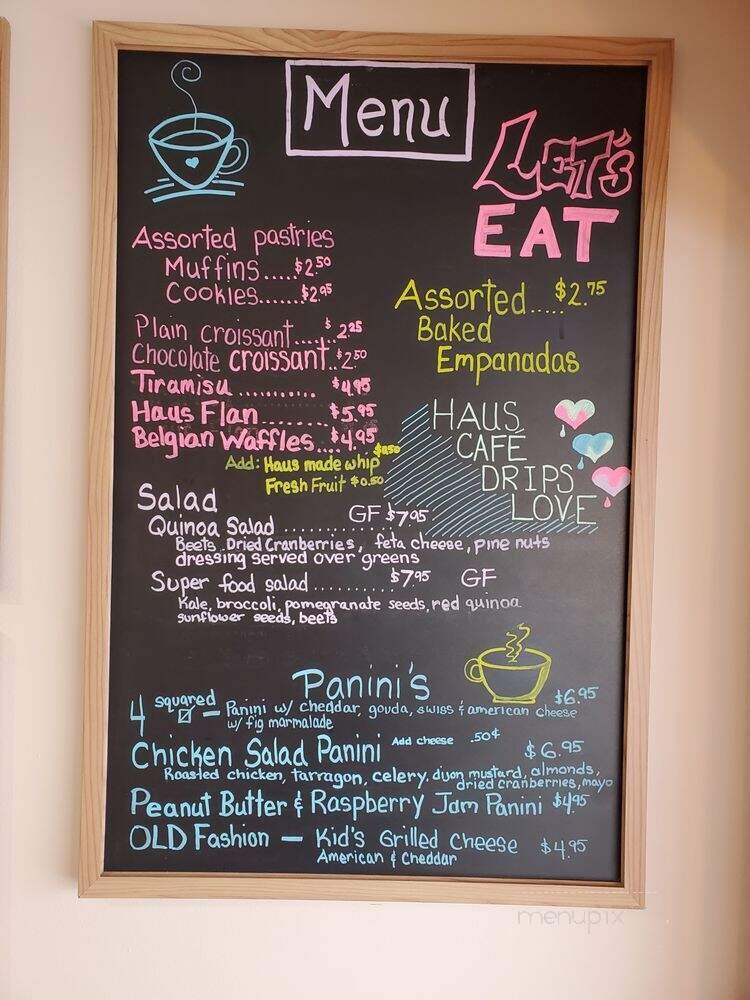 Menu
LET'S
EAT
Assorted pastries
Muffins.....$2.50
Cookies.......$2.95
Plain croissant......$2.25
Chocolate croissant..$2.50
Tiramisu ........... $4.95
Haus Flan.......... $5.95
Belgian Waffles....$4.95
Add: Haus made whip $0.50
Fresh Fruit $0.50
Assorted.....$2.75
Baked
Empanadas
HAUS
CAFÉ
DRIPS
LOVE
Salad
Quinoa Salad ............... GF $7.95
Beets. Dried Cranberries, feta cheese, pine nuts
dressing served over greens
Super food salad........... $7.95 GF
Kale, broccoli, pomegranate seeds, red quinoa
sunflower seeds, beets
Panini's
4 squared — Panini w/ cheddar, gouda, swiss & american cheese $6.95
w/ fig marmalade
Chicken Salad Panini Add cheese .50¢ $6.95
Roasted chicken, tarragon, celery. dijon mustard, almonds,
dried cranberries, mayo
Peanut Butter & Raspberry Jam Panini $4.95
OLD Fashion — Kid's Grilled Cheese $4.95
American & Cheddar
menupix